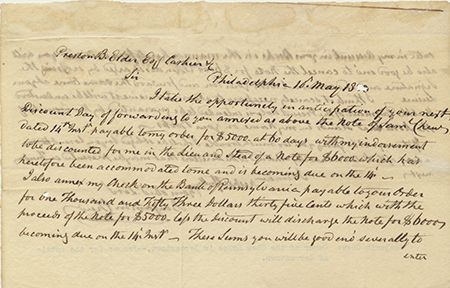 Preston B. Elder Esqr Cashier &c
Sir
Philadelphia 16 May 18
I take the opportunity in anticipation of your next
Discount Day of forwarding to you annexed as above the Note of Sam Chew
dated 14th Inst payable to my order for $5000. at 60 days with my indorsement
to be discounted for me in the lieu and stead of a Note for $6000. which has
heretofore been accommodated to me and is becoming due on the 14
I also annex my Check on the Bank of Pennsylvania payable to your Order
for one Thousand and Fifty Three Dollars thirty five Cents which with the
proceeds of the Note for $5000. less the discount will discharge the Note for $6000
becoming due on the 14 Inst - These Sums you will be good severally to
enter